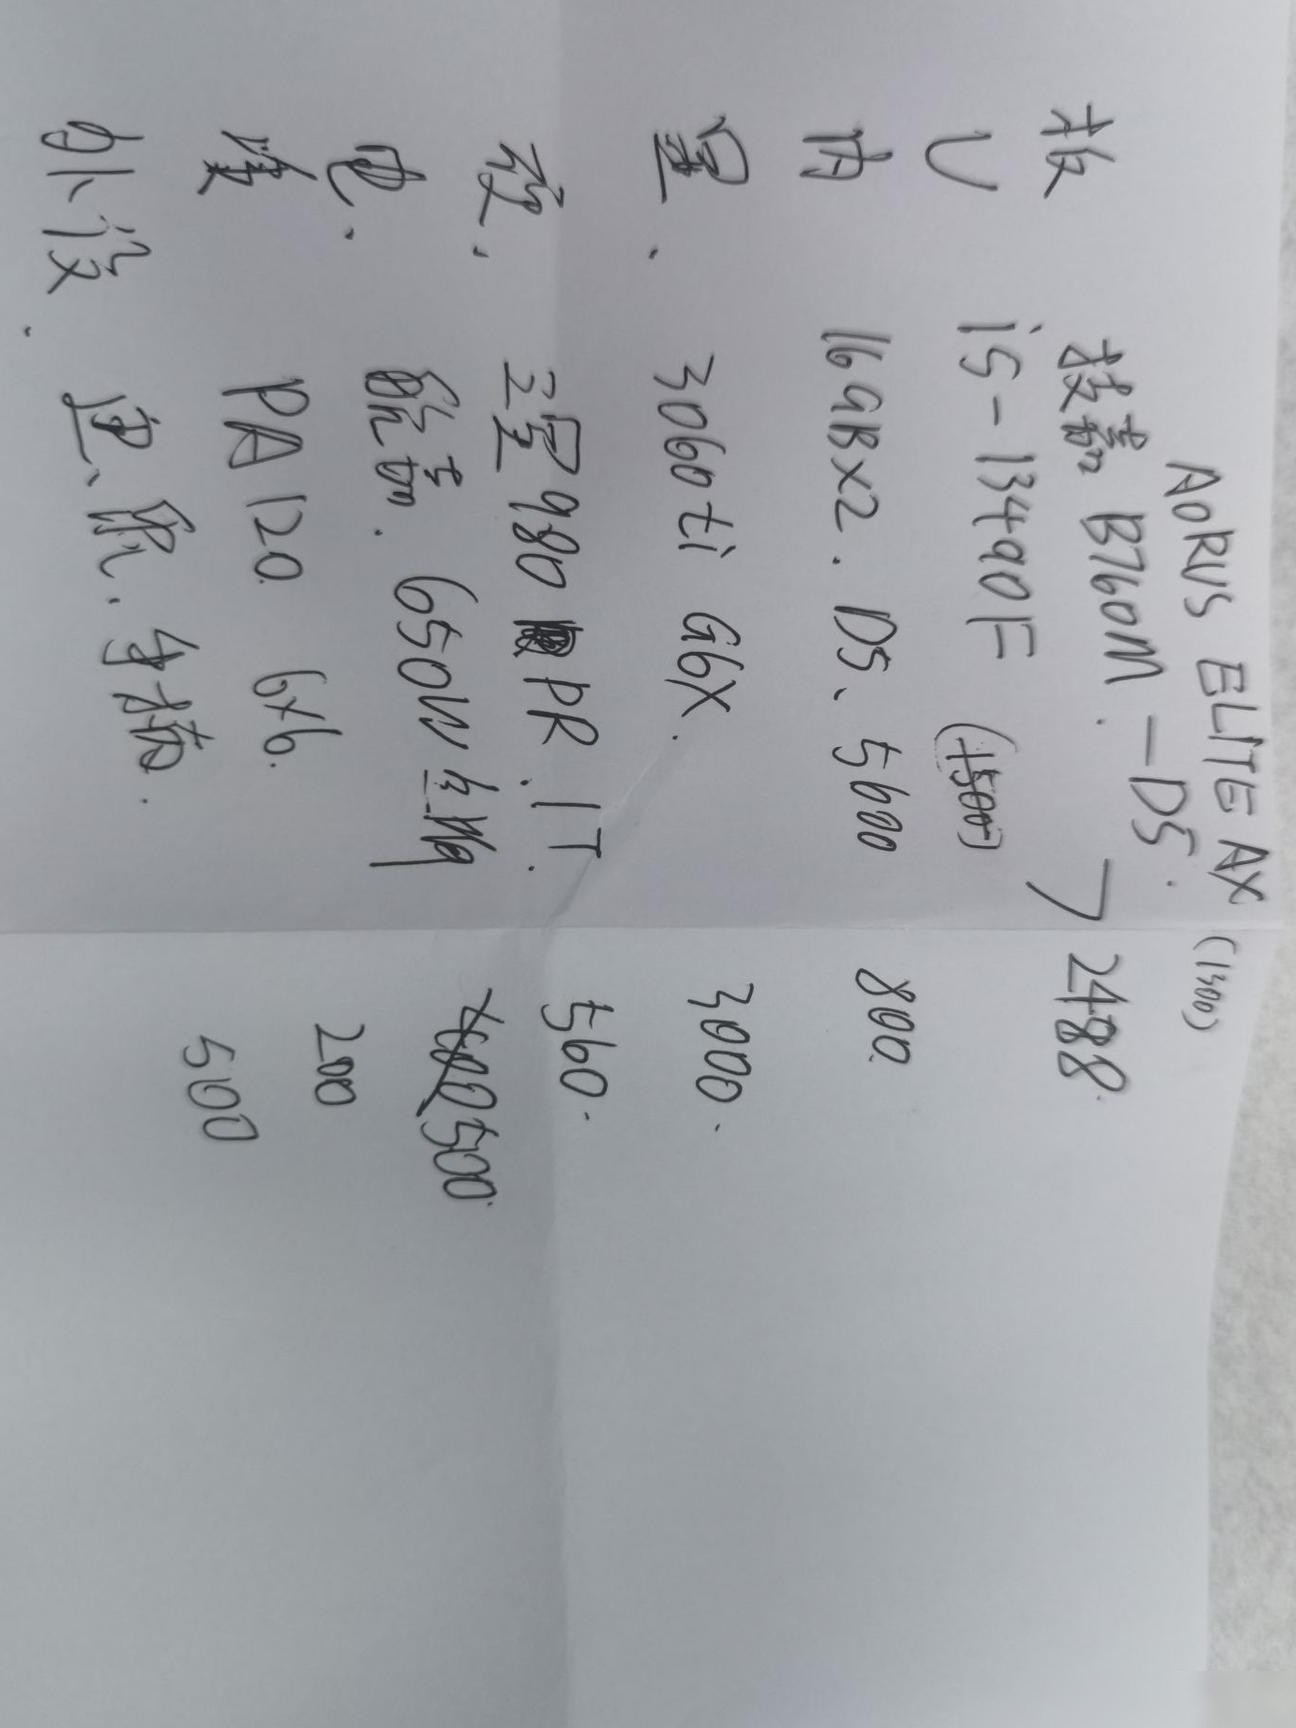 AORUS ELITE AX (1300)
板 技嘉 B760M. -D5.
U i5-13490F (1500) 2488.
内 16GBX2. D5、5600 800.
显. 3060ti G6X. 3000.
硬. 三星980 PR. 1T. 560.
电. 航嘉. 650W 全 400 500.
PA120 6X6. 200
外设. 鼠. 手柄. 500